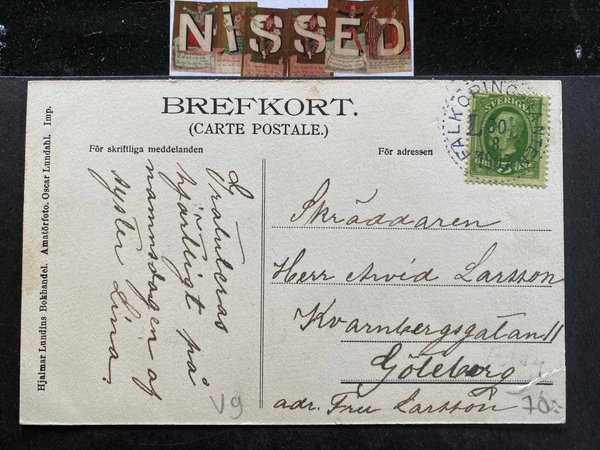 NiSSED
BREFKORT.
(CARTE POSTALE.)
För skriftliga meddelanden
För adressen
Hjalmar Lundins Bokhandel. Amatörfoto. Oscar Lundahl. Imp.
Gratuleras
hjärtligt på
namnsdagen af
syster Lina.
V9
FALKÖPING-RANTEN
SVERIGE
5
Skräddaren
Herr Arvid Larsson
Kvarnbergsgatan 11
Göteborg
adr. Fru Larsson
70:-